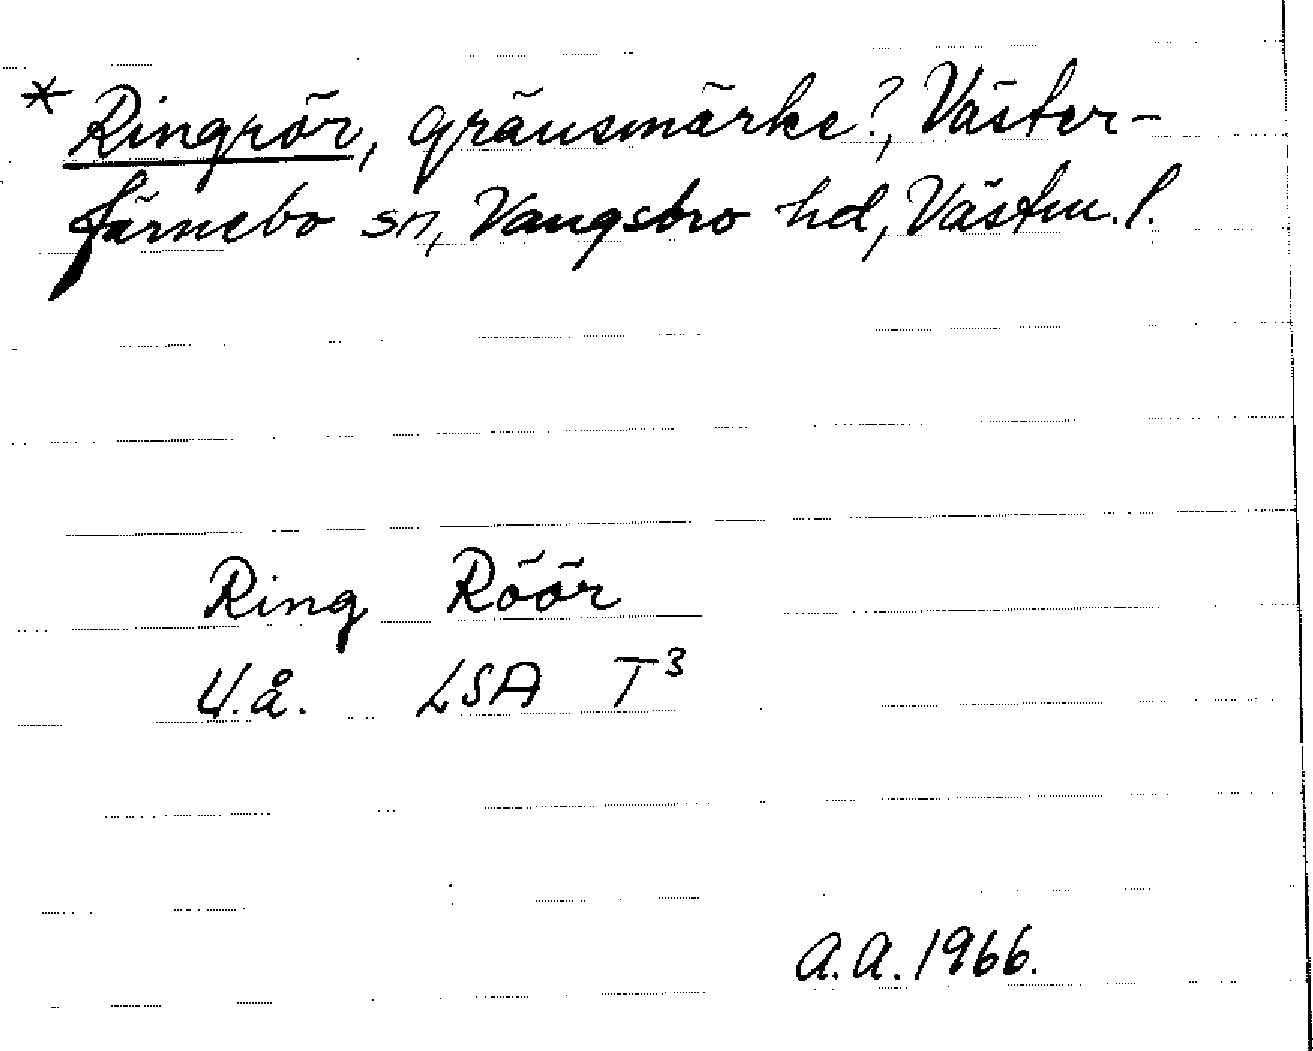 * Ringrör, gränsmärke?, Väster-
färnebo sn, Vangsbro hd, Västm. l.
Ring Röör
U.å. LSA T³
A.A. 1966.